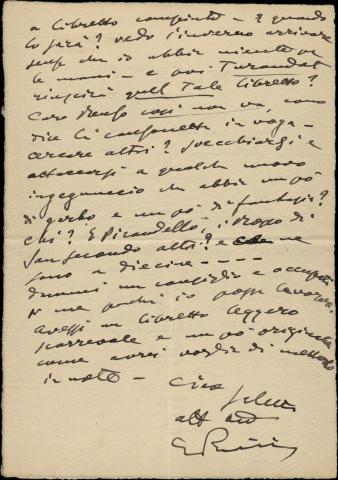 a libretto compiuto – e quando
lo sarà? vedo l'inverno arrivare
senza che io abbia niente per
le mani – e poi Turandot
riuscirà quel Tale libretto?
Caro Renzo così non va, come
dice la canzonetta in voga –
cercare altri? Specchiarsi e
attaccarsi a qualche nuovo
ingegnuccio che abbia un pò
di garbo e un pò di fantasia?
Chi? E Pirandello, Rosso di
San Secondo altri? e ce ne
sono a diecine – – – –
dammi un consiglio e
di me perchè io possa lavorare.
avessi un libretto leggero
scorrevole e un pò originale
come avrei voglia di metterlo
in note –
Ciao
saluti
aff
G Puccini